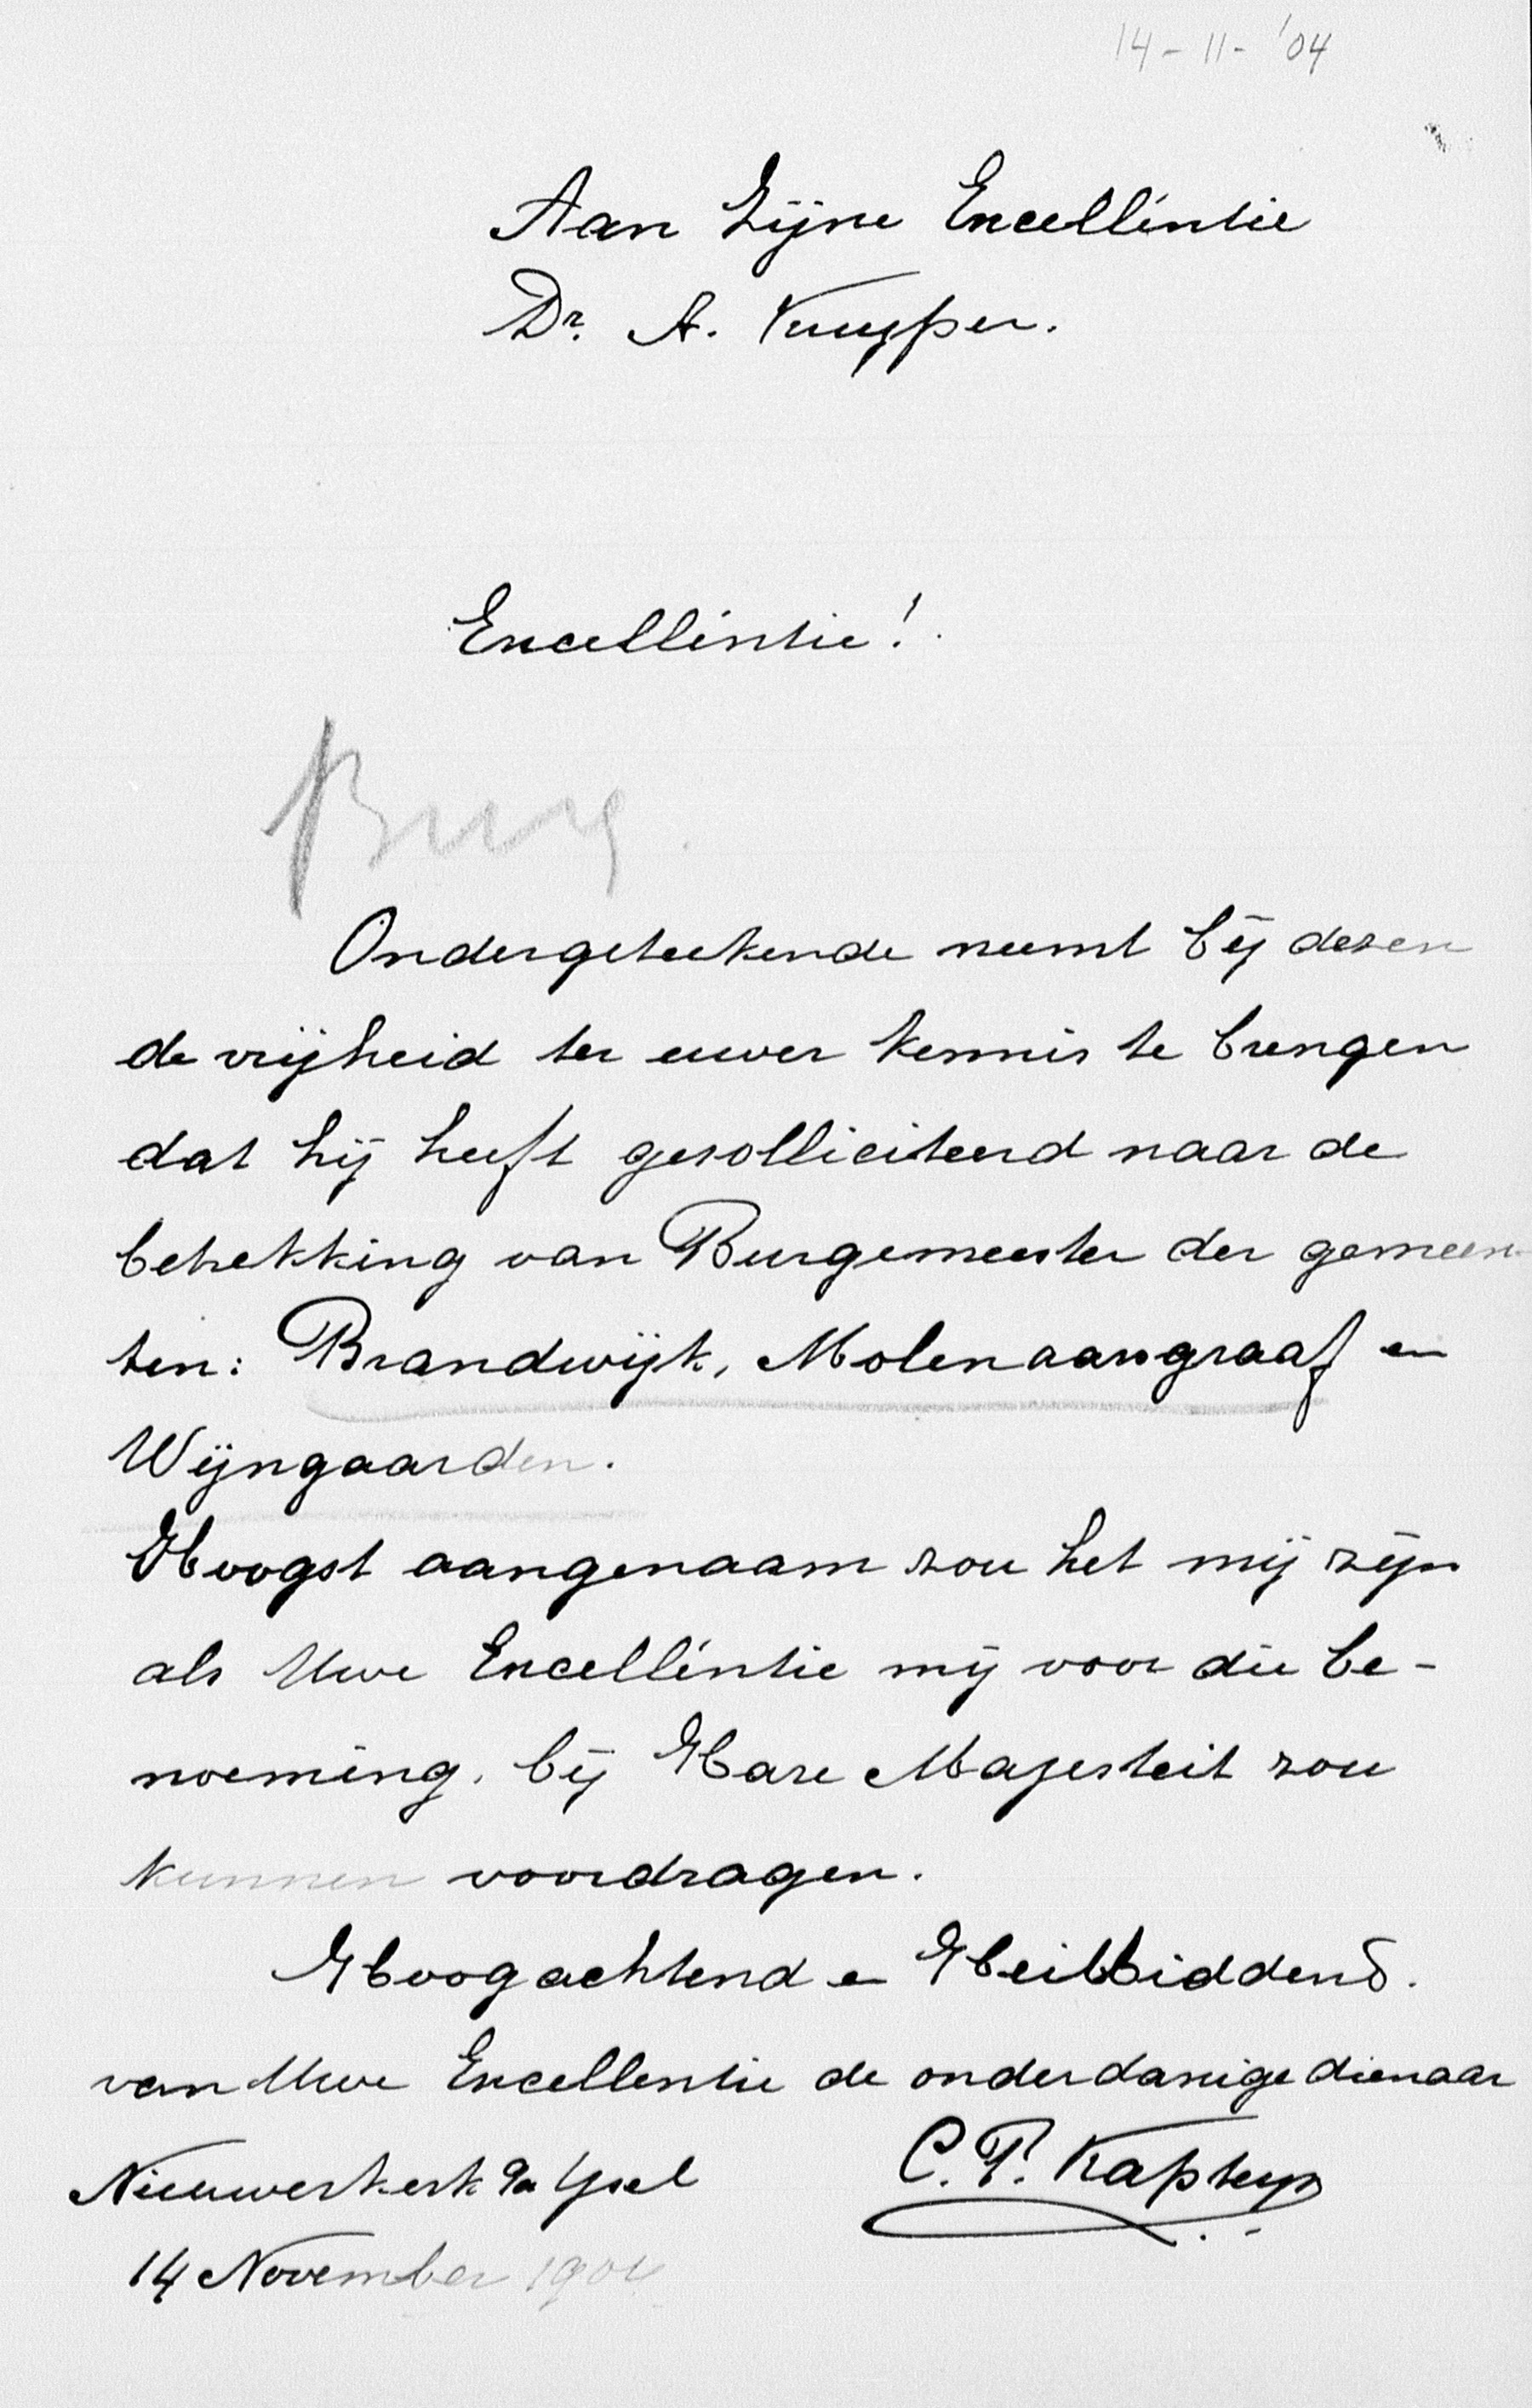 14-11-'04
Aan Zijne Excellentie
Dr. A. Kuyper.
Excellentie!
Burg.
Ondergeteekende neemt bij dezen
de vrijheid ter uwer kennis te brengen
dat hij heeft gesolliciteerd naar de
betrekking van Burgemeester der gemeen-
ten: Brandwijk, Molenaarsgraaf en
Wijngaarden.
Hoogst aangenaam zou het mij zijn
als Uwe Excellentie mij voor die be-
noeming, bij Hare Majesteit zou
kunnen voordragen.
Hoogachtend en Heilbiddend.
van Uwe Excellentie de onderdanige dienaar
Nieuwerkerk a/d IJsel
C. P. Kapteyn
14 November 1904